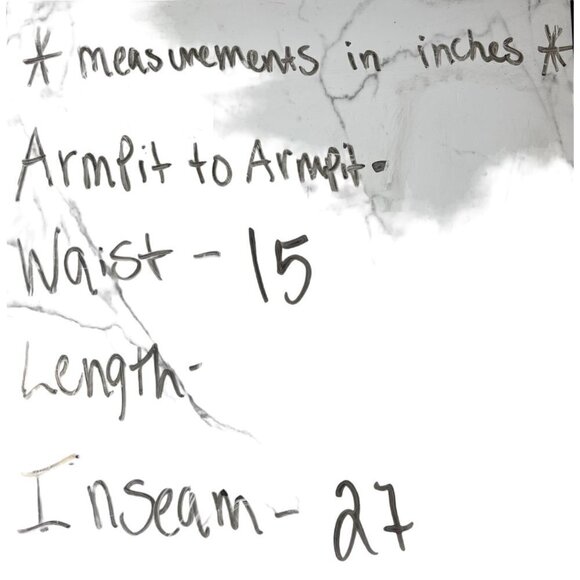 * measurements in inches *
ArmPit to Armpit -
Waist - 15
Length -
Inseam - 27